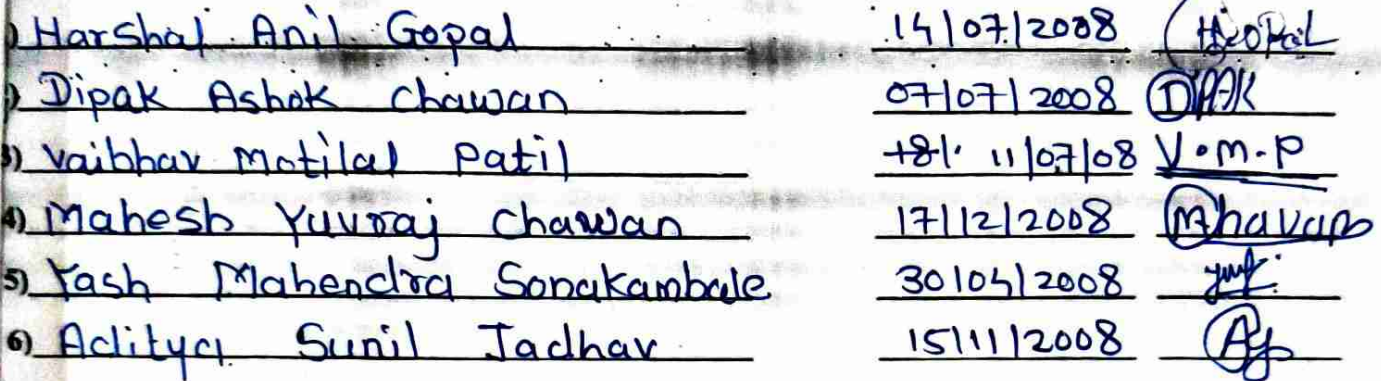 ) Harshal Anil Gopal 14/07/2008 HGopal
) Dipak Ashok Chawan 07/07/2008 DipAK
3) Vaibhav Motilal Patil 11/07/08 V.M.P
4) Mahesh Yuvraj Chawan 17/12/2008 Mchavan
5) Yash Mahendra Sonakambale 30/04/2008
6) Aditya Sunil Jadhav 15/11/2008